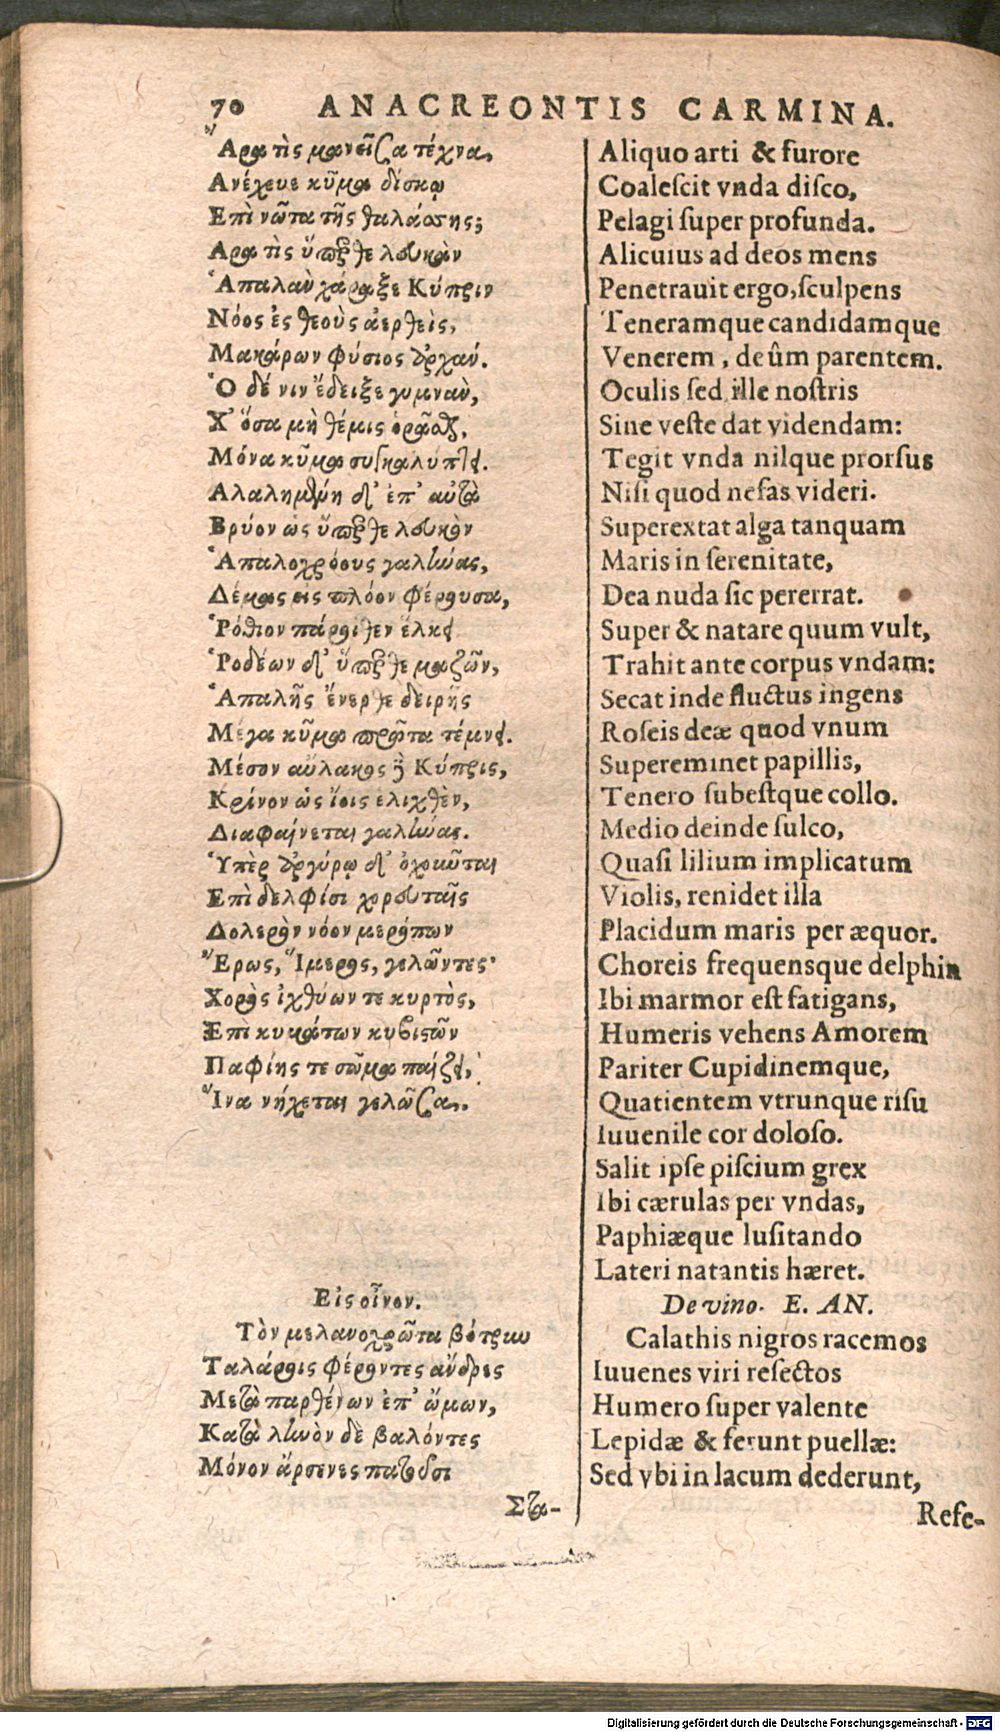 70 ANACREONTIS CARMINA.
Ἆρα τὶς μανεῖσα τέχνα,
Ανέχευε κῦμα δίσκῳ
Επὶ νῶτα τῆς θαλάσσης;
Αρα τὶς ὕπερθε λευκὰν
Ἁπαλὰν χάραξε Κύπριν
Νόος ἐς θεοὺς ἀερθεὶς,
Μακάρων φύσιος ἀρχάν.
Ὁ δέ νιν ἔδειξε γυμνὰν,
Χ' ὅσα μὴ θέμις ὁρᾶσθαι,
Μόνα κῦμα συγκαλύπτει.
Αλαλημένη δ' ἐπ' αὐτὰ
Βρύον ὡς ὕπερθε λευκὸν
Ἁπαλοχρόους γαλήνας,
Δέμας εἰς πλόον φέρουσα,
Ῥόθιον πάροιθεν ἕλκει
Ῥοδέων δ' ὕπερθε μαζῶν,
Ἁπαλῆς ἔνερθε δειρῆς
Μέγα κῦμα πρῶτα τέμνει.
Μέσον αὔλακος δὲ Κύπρις,
Κρίνον ὡς ἴοις ἑλιχθὲν,
Διαφαίνεται γαλήνας.
Ὑπὲρ ἀργύρῳ δ' ὀχοῦνται
Επὶ δελφῖσι χορευταῖς
Δολερὸν νόον μερόπων
Ἔρως, Ἵμερος, γελῶντες·
Χορὸς ἰχθύων τε κυρτὸς,
Επὶ κυμάτων κυβιστῶν
Παφίης τε σῶμα παίζει,
Ἵνα νήχεται γελῶσα.
Εἰς οἶνον.
Τὸν μελανοχρῶτα βότρυν
Ταλάροις φέροντες ἄνδρες
Μετὰ παρθένων ἐπ' ὤμων,
Κατὰ ληνὸν δὲ βαλόντες
Μόνον ἄρσενες πατοῦσι
Στα-
Aliquo arti & furore
Coalescit vnda disco,
Pelagi super profunda.
Alicuius ad deos mens
Penetrauit ergo, sculpens
Teneramque candidamque
Venerem, deûm parentem.
Oculis sed ille nostris
Sine veste dat videndam:
Tegit vnda nilque prorsus
Nisi quod nefas videri.
Superextat alga tanquam
Maris in serenitate,
Dea nuda sic pererrat.
Super & natare quum vult,
Trahit ante corpus vndam:
Secat inde fluctus ingens
Roseis deæ quod vnum
Supereminet papillis,
Tenero subestque collo.
Medio deinde sulco,
Quasi lilium implicatum
Violis, renidet illa
Placidum maris per æquor.
Choreis frequensque delphin
Ibi marmor est fatigans,
Humeris vehens Amorem
Pariter Cupidinemque,
Quatientem vtrunque risu
Iuuenile cor doloso.
Salit ipse piscium grex
Ibi cærulas per vndas,
Paphiæque lusitando
Lateri natantis hæret.
De vino. E. AN.
Calathis nigros racemos
Iuuenes viri resectos
Humero super valente
Lepidæ & ferunt puellæ:
Sed vbi in lacum dederunt,
Rese-
Digitalisierung gefördert durch die Deutsche Forschungsgemeinschaft - DFG